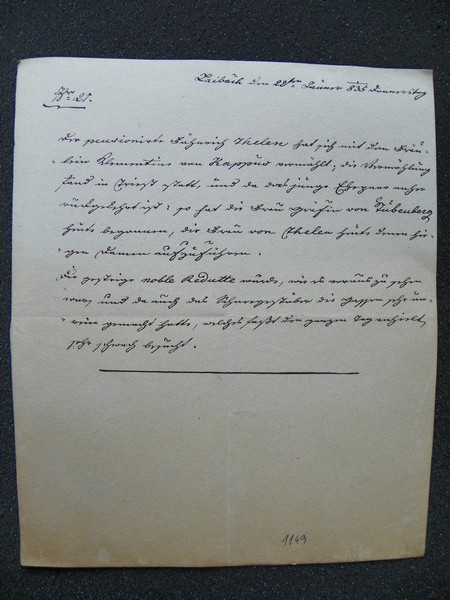 Laibach den 22ten Jänner 835 Donnerstag
Nr: 21.
Der pensionirte Fähnrich Thelen hat sich mit dem Fräu-
lein Klementine von Kappus vermählt; die Vermählung
fand in Triest statt, und da das junge Ehepaar anher
rückgekehrt ist: so hat die Frau Gräfin von Stubenberg
heute begonnen, die Frau von Thelen heute denen hie-
gen Damen aufzuführen.
Die gestrige noble Redutte wurde, wie es voraus zu sehen
war, und da auch das Schneegestöber die Gassen sehr un-
rein gemacht hatte, welches fast den ganzen Tag anhielt,
sehr schwach besucht.
1149